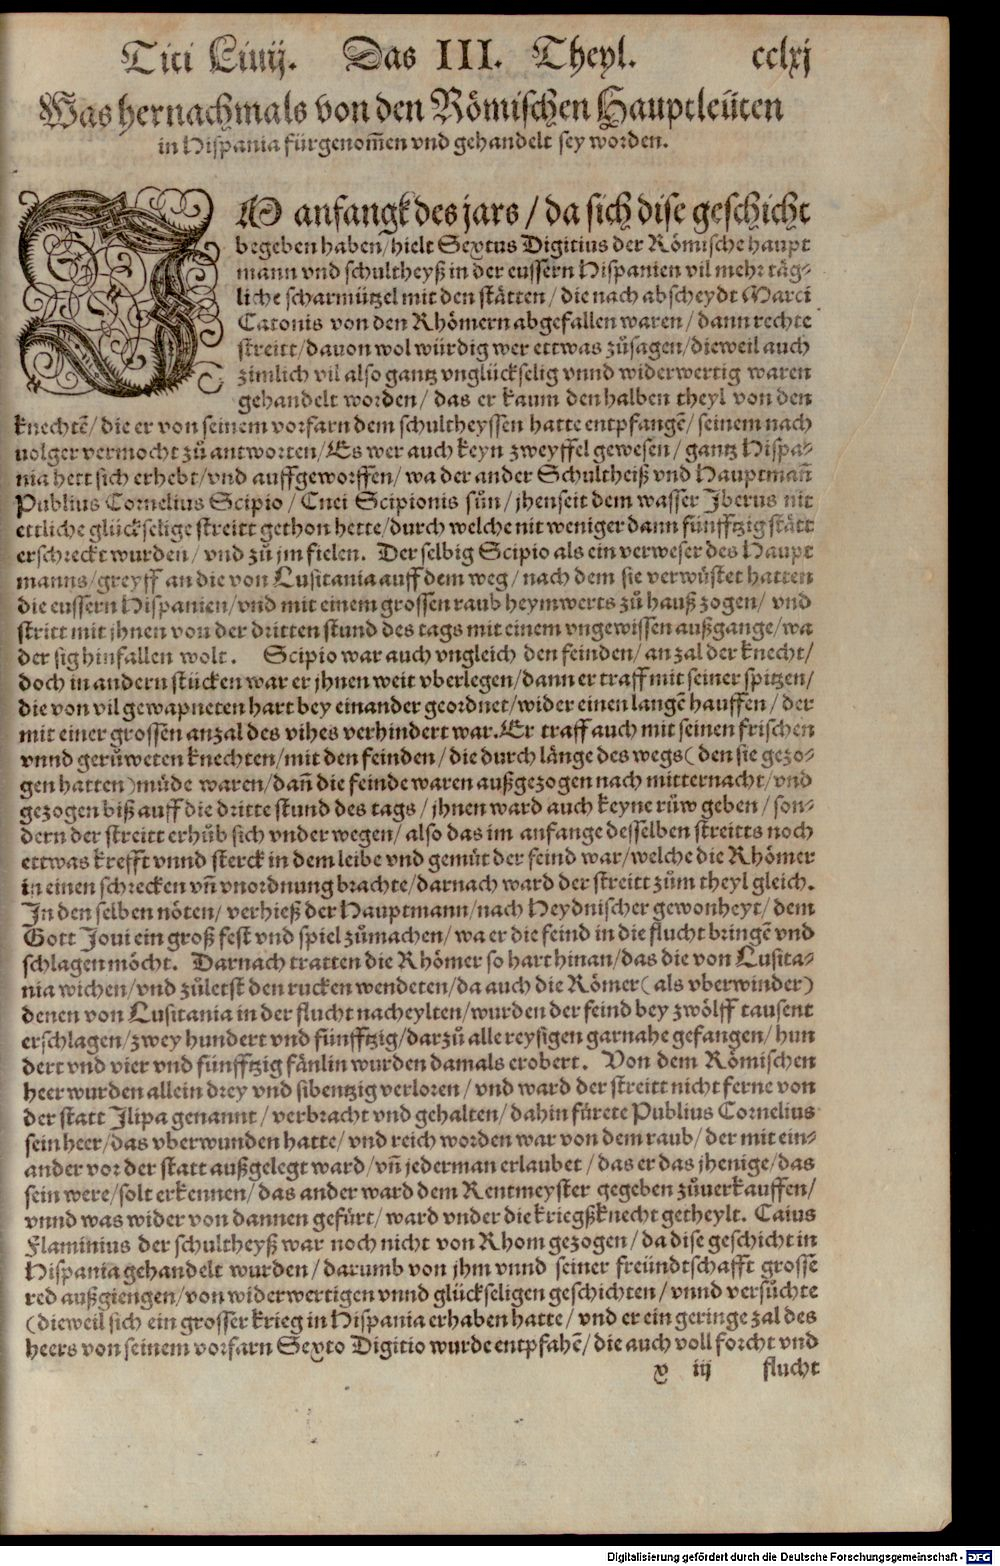 Titi Liuij. Das III. Theyl. cclxj
Was hernachmals von den Römischen Hauptleüten
in Hispania fürgenom̃en vnd gehandelt sey worden.
IM anfangk des jars / da sich dise geschicht
begeben haben / hielt Sextus Digitius der Römische haupt
mann vnd schultheyß in der eussern Hispanien vil mehr täg-
liche scharmützel mit den stätten / die nach abscheydt Marci
Catonis von den Rhömern abgefallen waren / dann rechte
streitt / dauon wol würdig wer ettwas zůsagen / dieweil auch
zimlich vil also gantz vnglückselig vnnd widerwertig waren
gehandelt worden / das er kaum den halben theyl von den
knechtẽ / die er von seinem vorfarn dem schultheyssen hatte entpfangẽ / seinem nach
uolger vermocht zů antworten / Es wer auch keyn zweyffel gewesen / gantz Hispa-
nia hett sich erhebt / vnd auffgeworffen / wa der ander Schultheiß vnd Hauptmañ
Publius Cornelius Scipio / Cnei Scipionis sůn / jhenseit dem wasser Jberus nit
ettliche glückselige streitt gethon hette / durch welche nit weniger dann fünfftzig stätt
erschreckt wurden / vnd zů jm fielen. Der selbig Scipio als ein verweser des Haupt
manns / greyff an die von Lusitania auff dem weg / nach dem sie verwüstet hatten
die eussern Hispanien / vnd mit einem grossen raub heymwerts zů hauß zogen / vnd
stritt mit jhnen von der dritten stund des tags mit einem vngewissen außgange / wa
der sig hinfallen wolt. Scipio war auch vngleich den feinden / an zal der knecht /
doch in andern stücken war er jhnen weit vberlegen / dann er traff mit seiner spitzen /
die von vil gewapneten hart bey einander geordnet / wider einen langẽ hauffen / der
mit einer grossen anzal des vihes verhindert war. Er traff auch mit seinen frischen
vnnd gerůweten knechten / mit den feinden / die durch länge des wegs ( den sie gezo-
gen hatten ) müde waren / dañ die feinde waren außgezogen nach mitternacht / vnd
gezogen biß auff die dritte stund des tags / jhnen ward auch keyne růw geben / son-
dern der streitt erhůb sich vnder wegen / also das im anfange desselben streitts noch
ettwas krefft vnnd sterck in dem leibe vnd gemüt der feind war / welche die Rhömer
in einen schrecken vñ vnordnung brachte / darnach ward der streitt zům theyl gleich.
In den selben nöten / verhieß der Hauptmann / nach Heydnischer gewonheyt / dem
Gott Joui ein groß fest vnd spiel zůmachen / wa er die feind in die flucht bringẽ vnd
schlagen möcht. Darnach tratten die Rhömer so hart hinan / das die von Lusita-
nia wichen / vnd zůletst den rucken wendeten / da auch die Römer ( als vberwinder )
denen von Lusitania in der flucht nacheylten / wurden der feind bey zwölff tausent
erschlagen / zwey hundert vnd fünfftzig / darzů alle reysigen garnahe gefangen / hun
dert vnd vier vnd fünfftzig fänlin wurden damals erobert. Von dem Römischen
heer wurden allein drey vnd sibentzig verloren / vnd ward der streitt nicht ferne von
der statt Jlipa genannt / verbracht vnd gehalten / dahin fürete Publius Cornelius
sein heer / das vberwunden hatte / vnd reich worden war von dem raub / der mit ein-
ander vor der statt außgelegt ward / vñ jederman erlaubet / das er das jhenige / das
sein were / solt erkennen / das ander ward dem Rentmeyster gegeben zůuerkauffen /
vnnd was wider von dannen gefürt / ward vnder die kriegßknecht getheylt. Caius
Flaminius der schultheyß war noch nicht von Rhom gezogen / da dise geschicht in
Hispania gehandelt wurden / darumb von jhm vnnd seiner freündtschafft grossẽ
red außgiengen / von widerwertigen vnnd glückseligen geschichten / vnnd versůchte
( dieweil sich ein grosser krieg in Hispania erhaben hatte / vnd er ein geringe zal des
heers von seinem vorfarn Sexto Digitio wurde entpfahẽ / die auch voll forcht vnd
x iij flucht
Digitalisierung gefördert durch die Deutsche Forschungsgemeinschaft - DFG